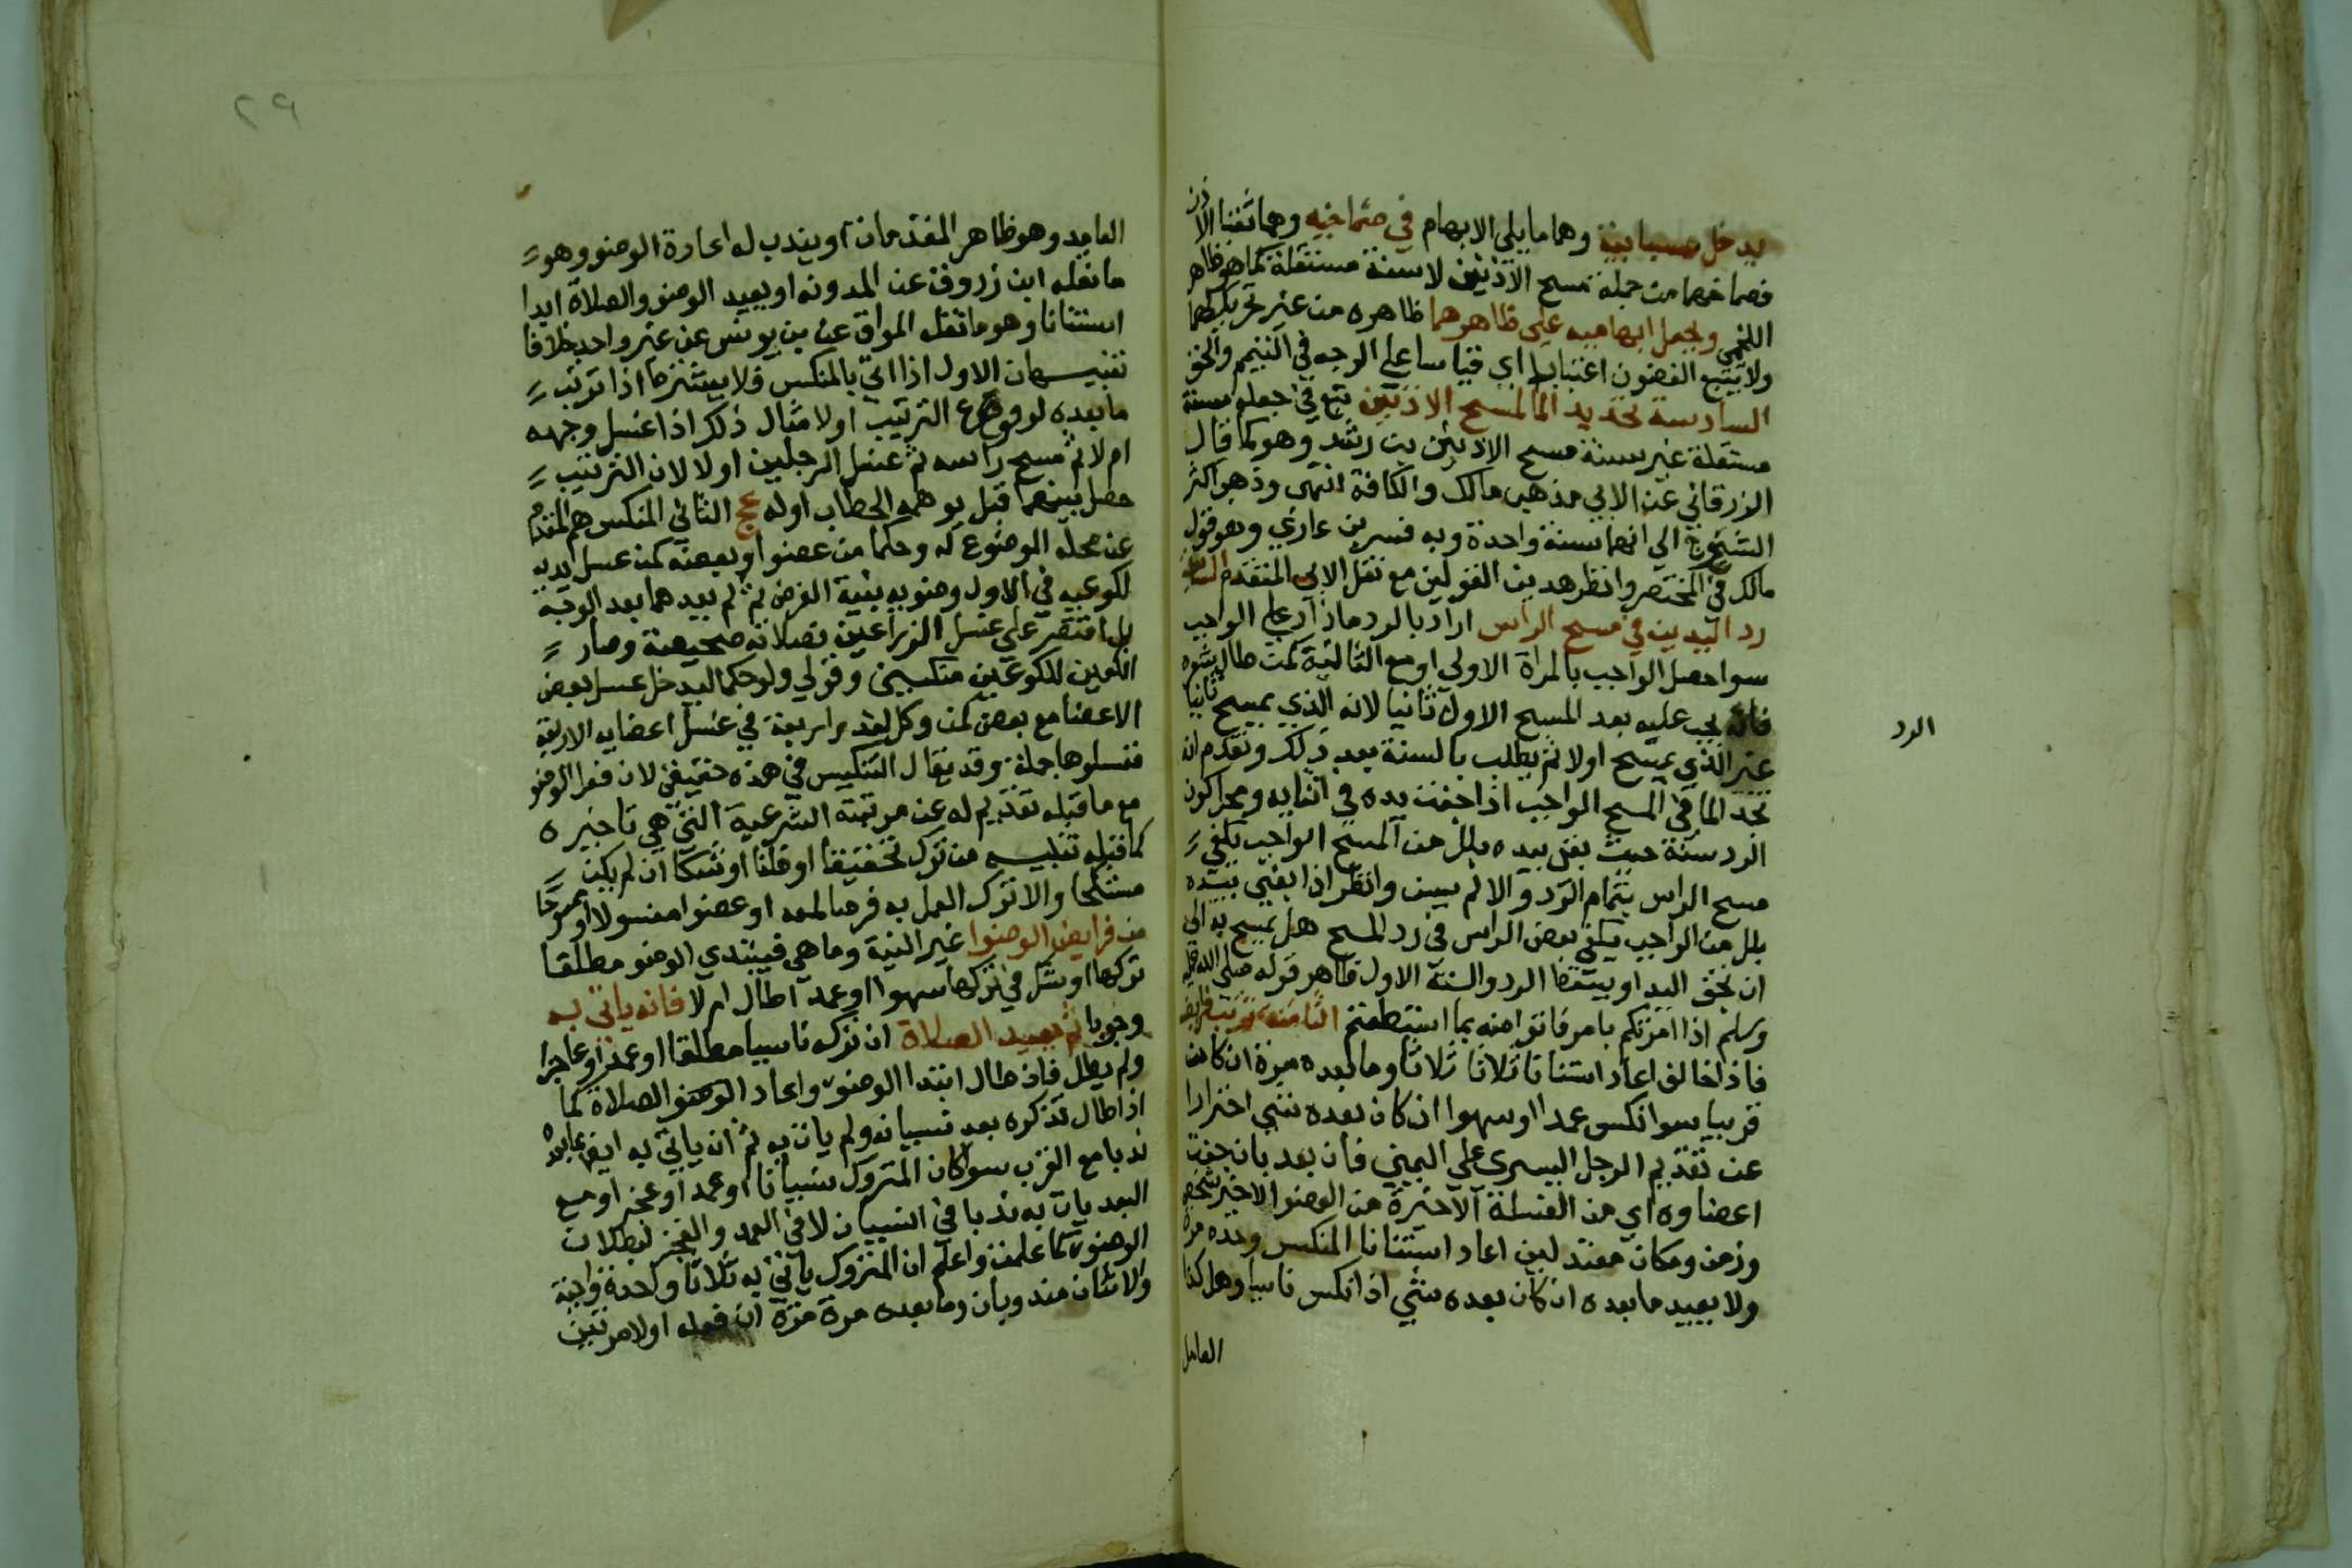 يدخل سبابتيه وهما ما يلي الابهام في صماخيه وهما ثقبا الاذن
فصماخهما من جملة مسح الاذنين لا سنة مستقلة كما هو ظاهر
اللخمي ويجعل ابهاميه على ظاهرهما ظاهره من غير تحريكهما
ولا يتبع الغضون اعتبارا اي قياسا على الوجه في التيمم والخف
السادسة تجديد الما لمسح الاذنين تبع في جعله سنة
مستقلة غير سنة مسح الاذنين بن رشد وهو كما قال
الزرقاني عن الابي مذهب مالك والكافة انتهى وذهب اكثر
الشيوخ الي انهما سنة واحدة وبه فسر بن عازي وهو قول
مالك في المختصر وانظر هذين القولين مع نقل الابي المتقدم السابعة
رد اليدين في مسح الراس اراد بالرد ما زاد على الواجب
سوا حصل الواجب بالمراة الاولي او مع الثانية كمن طال شعره
فانه يجب عليه بعد المسح الاول ثانيا لانه الذي يمسح ثانيا
الرد
غير الذي يمسح اولا ثم يطلب بالسنة بعد ذلك وتقدم انه
يجد الما في المسح الواجب اذا جفت يده في اثنايه ومحل كون
الرد سنة حيث بقي بيده بلل من المسح الواجب يكفي
مسح الراس بتمام الرد والا لم يسن وانظر اذا بقي بيده
بلل من الواجب يكفي بعض الراس في رد المسح هل يمسح به الى
ان تجف اليد او يسقط الرد والسنة الاول ظاهر قوله صلى الله عليه
وسلم اذا امرتكم بامر فاتوا منه بما استطعتم الثامنة ترتيب فرايضه
فاذا خالف اعاد استنانا ثلاثا ثلاثا وما بعده مرة ان كان
قريبا سوا نكس عمدا او سهوا ان كان بعده شي احترازا
عن تقديم الرجل اليسري على اليمني فان بعد بان جفت
اعضاوه اي من الغسلة الاخيرة من العضو الاخير شخص
وزمن ومكان معتدلين اعاد استنانا المنكس وحده مرة
ولا يعيد ما بعده ان كان بعده شي اذا نكس ناسيا وهل كذا
العامل
٢٩
العامد وهو ظاهر المقدمات او يندب له اعادة الوضو وهو
ما نقله ابن زروق عن المدونه او يعيد الوضو والصلاة ابدا
استنانا وهو ما نقله المواق عن بن يونس عن غير واحد خلافا
تنبيهان الاول اذا اتي بالمنكس فلا يشترط اذا ترتب
ما بعده لوقوع الترتيب اولا مثال ذلك اذا غسل وجهه
ام لا ثم مسح راسه ثم غسل الرجلين اولا لان الترتيب
حصل بينهما قبل يوهمه الحطاب اوله عج الثاني المنكس هو المقدم
عن محله الموضوع له وحكما من عضو او بعضه كمن غسل يديه
لكوعيه في الاول وضويه بنية الفرض ثم لم يعدهما بعد الوجه
بل اقتصر على غسل الذراعين فصلاته صحيحة وصار
الكفين للكوعين منكسين وقولي ولو حكما ليدخل غسل بعض
الاعضا مع بعض كمن وكل اربعة في غسل اعضايه الاربعة
فغسلوها جملة وقد يقال التنكيس في هذه حقيقي لان فعل الوضو
مع ما قبله تقديم له عن مرتبته الشرعية التي هي تاخيره
كما قبله تنبيه من ترك تحقيقا او ظنا او شكا ان لم يكن
مستنكحا والا ترك العمل به فرضا لمعه او عضوا مغسولا او ممسوحا
من فرايض الوضوا غير النية وما هي فيبتدي الوضو مطلقا
تركها او شك في تركها سهوا او عمدا طال ام لا فانه ياتي به
وجوبا ثم يعيد الصلاة ان تركه ناسيا مطلقا او عمدا وعاجزا
ولم يطل فان طال ابتدا الوضو واعاد الوضو والصلاة كما
اذا طال تذكره بعد نسيانه ولم يات به ثم ان ياتي به
ندبا مع القرب سوا كان المتروك نسيانا او عمدا او عجز او مع
البعد يات به ندبا في النسيان لا في العمد والعجز لبطلان
الوضو كما علمت واعلم ان المتروك ياتي به ثلاثا واحدة واجبة
والاثنان مندوبان وما بعده مرة مرة ان فعله اولا مرتين